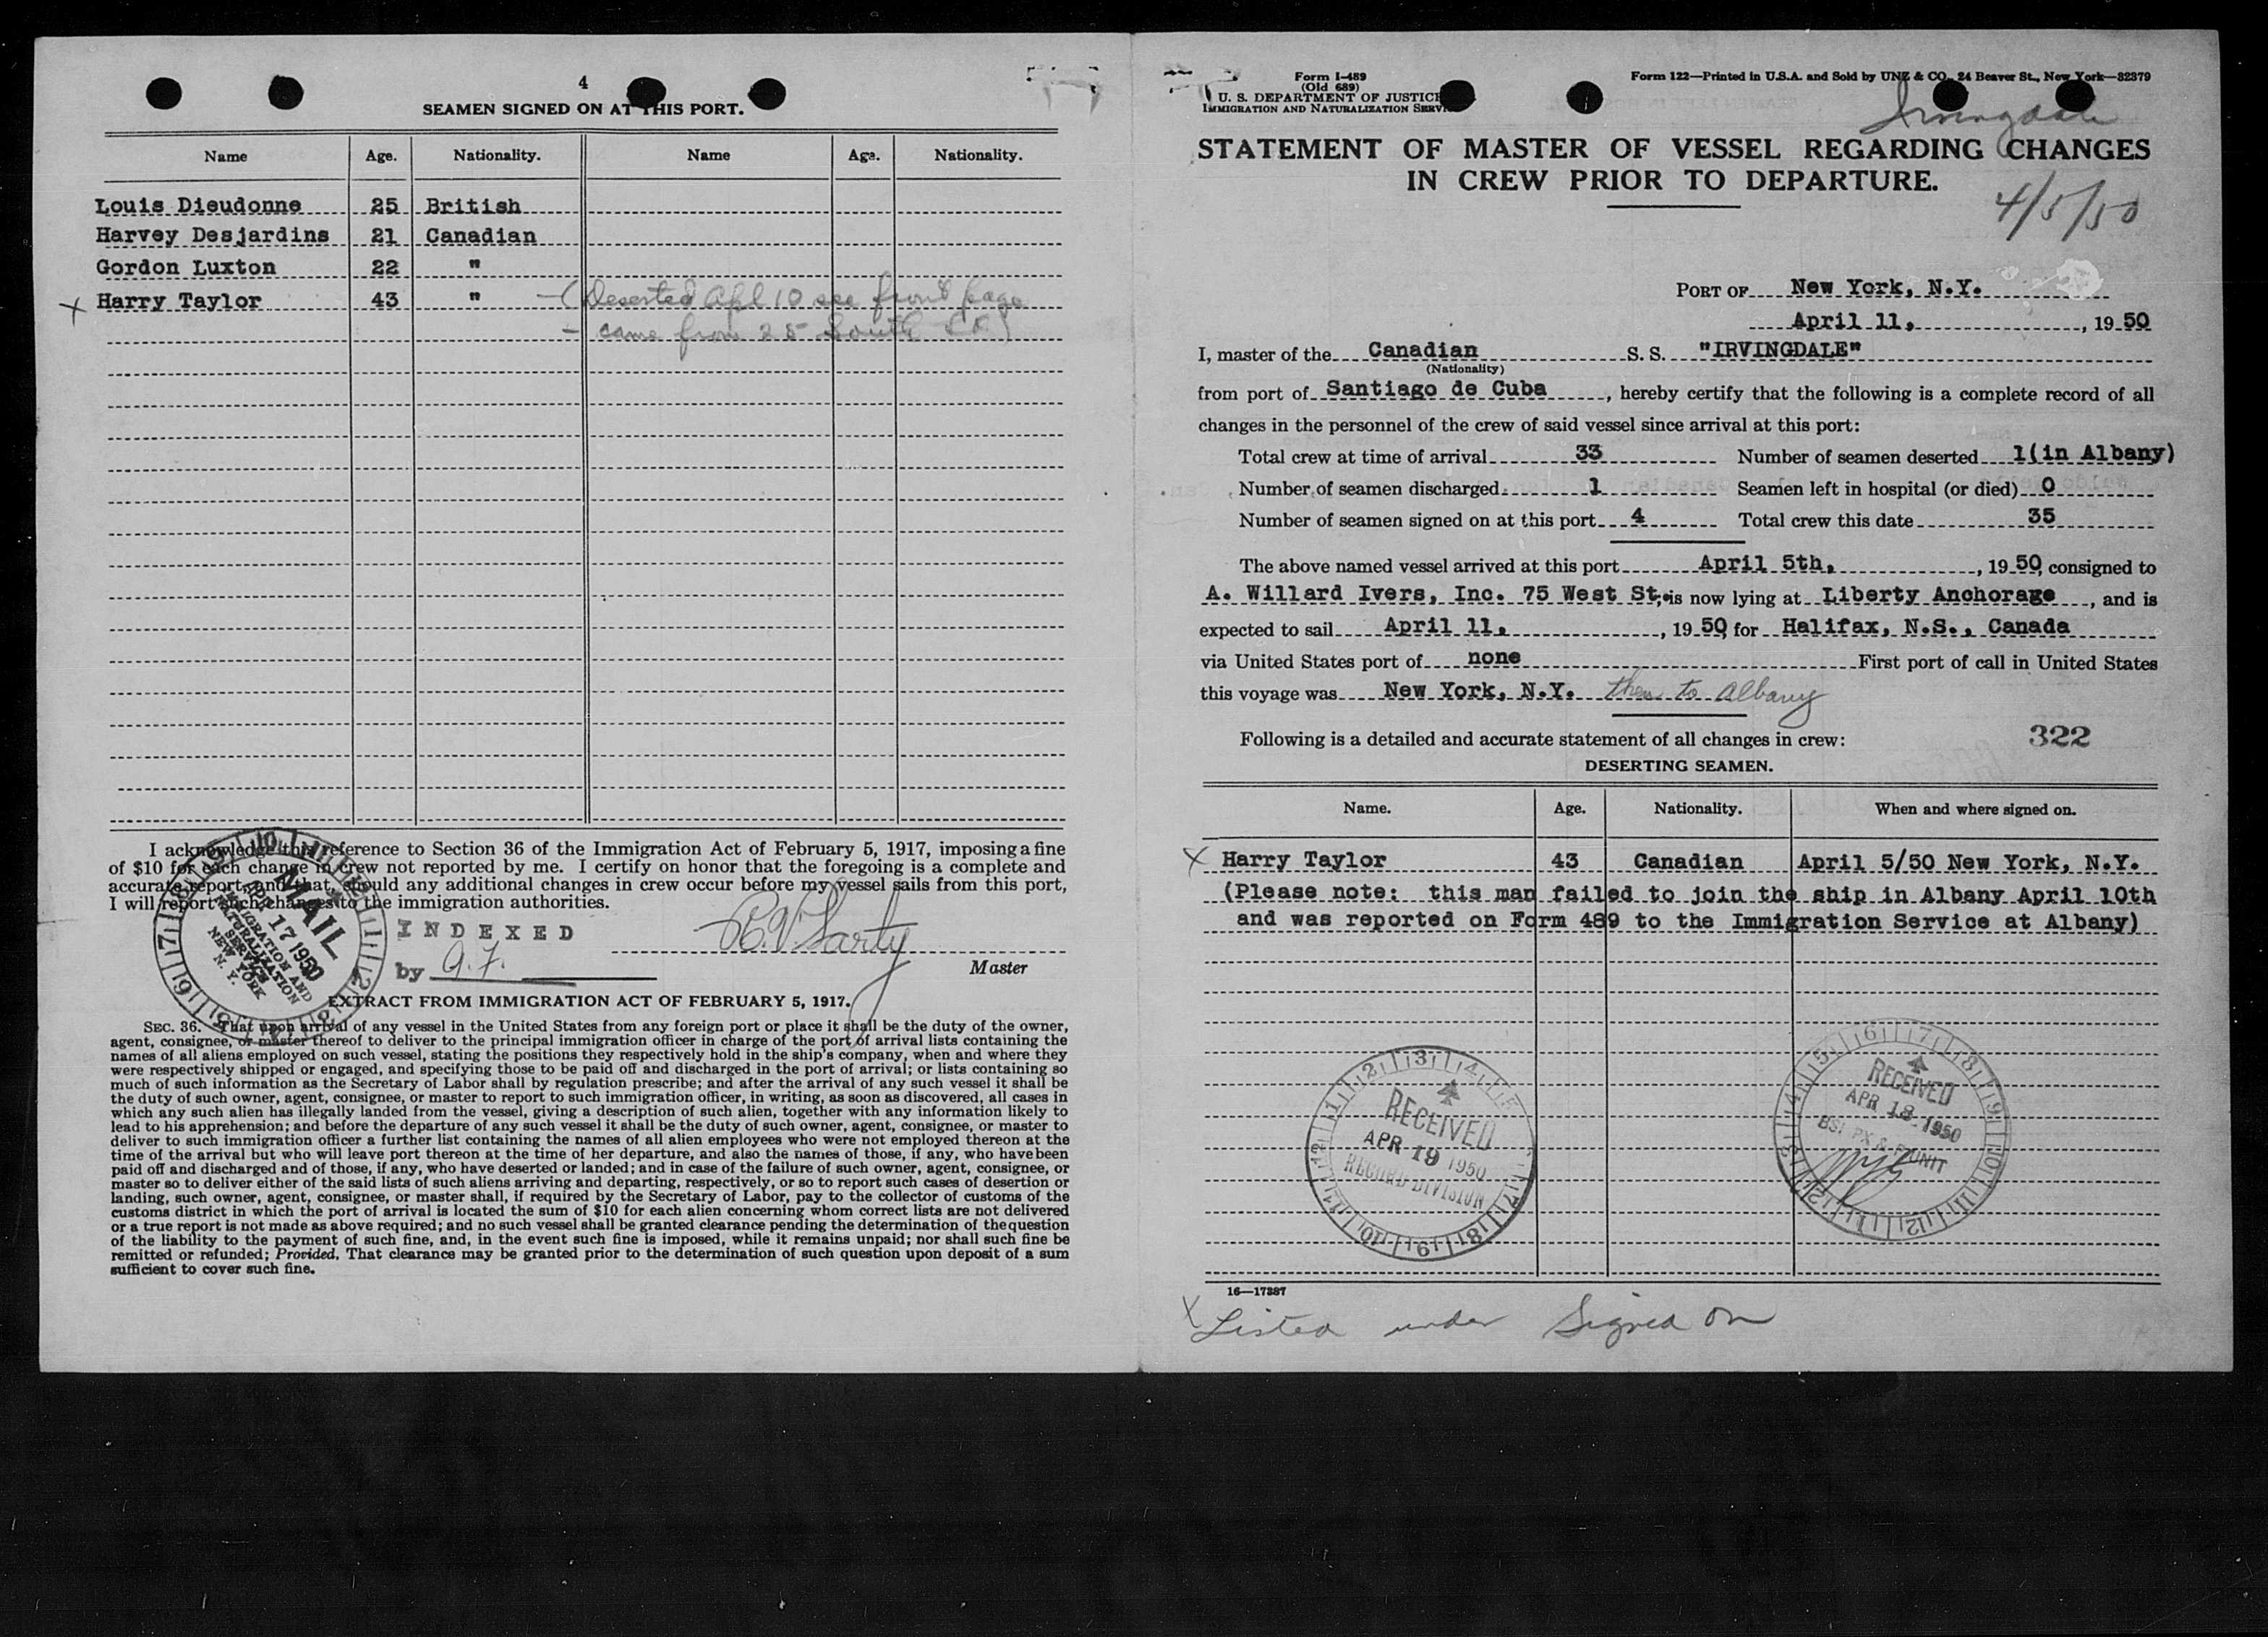 4
SEAMEN SIGNED ON AT THIS PORT.
Name Age. Nationality. Name Age. Nationality.
Louis Dieudonne 25 British
Harvey Desjardins 21 Canadian
Gordon Luxton 22 "
X Harry Taylor 43 " - (Deserted Apl 10 see front page
- came from 25 South St)
I acknowledge this reference to Section 36 of the Immigration Act of February 5, 1917, imposing a fine
of $10 for each change in crew not reported by me. I certify on honor that the foregoing is a complete and
accurate report, and that, should any additional changes in crew occur before my vessel sails from this port,
I will report such changes to the immigration authorities.
MAIL
APR 17 1950
IMMIGRATION AND
NATURALIZATION
SERVICE
NEW YORK
N. Y.
INDEXED
by
Master
EXTRACT FROM IMMIGRATION ACT OF FEBRUARY 5, 1917.
SEC. 36. That upon arrival of any vessel in the United States from any foreign port or place it shall be the duty of the owner,
agent, consignee, or master thereof to deliver to the principal immigration officer in charge of the port of arrival lists containing the
names of all aliens employed on such vessel, stating the positions they respectively hold in the ship's company, when and where they
were respectively shipped or engaged, and specifying those to be paid off and discharged in the port of arrival; or lists containing so
much of such information as the Secretary of Labor shall by regulation prescribe; and after the arrival of any such vessel it shall be
the duty of such owner, agent, consignee, or master to report to such immigration officer, in writing, as soon as discovered, all cases in
which any such alien has illegally landed from the vessel, giving a description of such alien, together with any information likely to
lead to his apprehension; and before the departure of any such vessel it shall be the duty of such owner, agent, consignee, or master to
deliver to such immigration officer a further list containing the names of all alien employees who were not employed thereon at the
time of the arrival but who will leave port thereon at the time of her departure, and also the names of those, if any, who have been
paid off and discharged and of those, if any, who have deserted or landed; and in case of the failure of such owner, agent, consignee, or
master so to deliver either of the said lists of such aliens arriving and departing, respectively, or so to report such cases of desertion or
landing, such owner, agent, consignee, or master shall, if required by the Secretary of Labor, pay to the collector of customs of the
customs district in which the port of arrival is located the sum of $10 for each alien concerning whom correct lists are not delivered
or a true report is not made as above required; and no such vessel shall be granted clearance pending the determination of the question
of the liability to the payment of such fine, and, in the event such fine is imposed, while it remains unpaid; nor shall such fine be
remitted or refunded; Provided, That clearance may be granted prior to the determination of such question upon deposit of a sum
sufficient to cover such fine.
Form I-489
(Old 689)
U. S. DEPARTMENT OF JUSTICE
IMMIGRATION AND NATURALIZATION SERVICE
Form 122—Printed in U.S.A. and Sold by UNZ & CO., 24 Beaver St., New York—32379
Irvingdale
STATEMENT OF MASTER OF VESSEL REGARDING CHANGES
IN CREW PRIOR TO DEPARTURE.
4/5/50
PORT OF New York, N.Y.
April 11, , 19 50
I, master of the Canadian S. S. "IRVINGDALE"
(Nationality)
from port of Santiago de Cuba , hereby certify that the following is a complete record of all
changes in the personnel of the crew of said vessel since arrival at this port:
Total crew at time of arrival 33 Number of seamen deserted 1(in Albany)
Number of seamen discharged 1 Seamen left in hospital (or died) 0
Number of seamen signed on at this port 4 Total crew this date 35
The above named vessel arrived at this port April 5th, , 19 50, consigned to
A. Willard Ivers, Inc. 75 West St., is now lying at Liberty Anchorage , and is
expected to sail April 11, , 19 50, for Halifax, N.S., Canada
via United States port of none First port of call in United States
this voyage was New York, N.Y. then to Albany
Following is a detailed and accurate statement of all changes in crew: 322
DESERTING SEAMEN.
Name. Age. Nationality. When and where signed on.
X Harry Taylor 43 Canadian April 5/50 New York, N.Y.
(Please note: this man failed to join the ship in Albany April 10th
and was reported on Form 489 to the Immigration Service at Albany)
RECEIVED
APR 19 1950
RECORD DIVISION
RECEIVED
APR 18 1950
BSI PX & P UNIT
16—17287
X Listed under Signed on